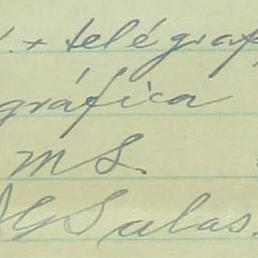 . + telégraf
gráfica
MS.
AGSalas.